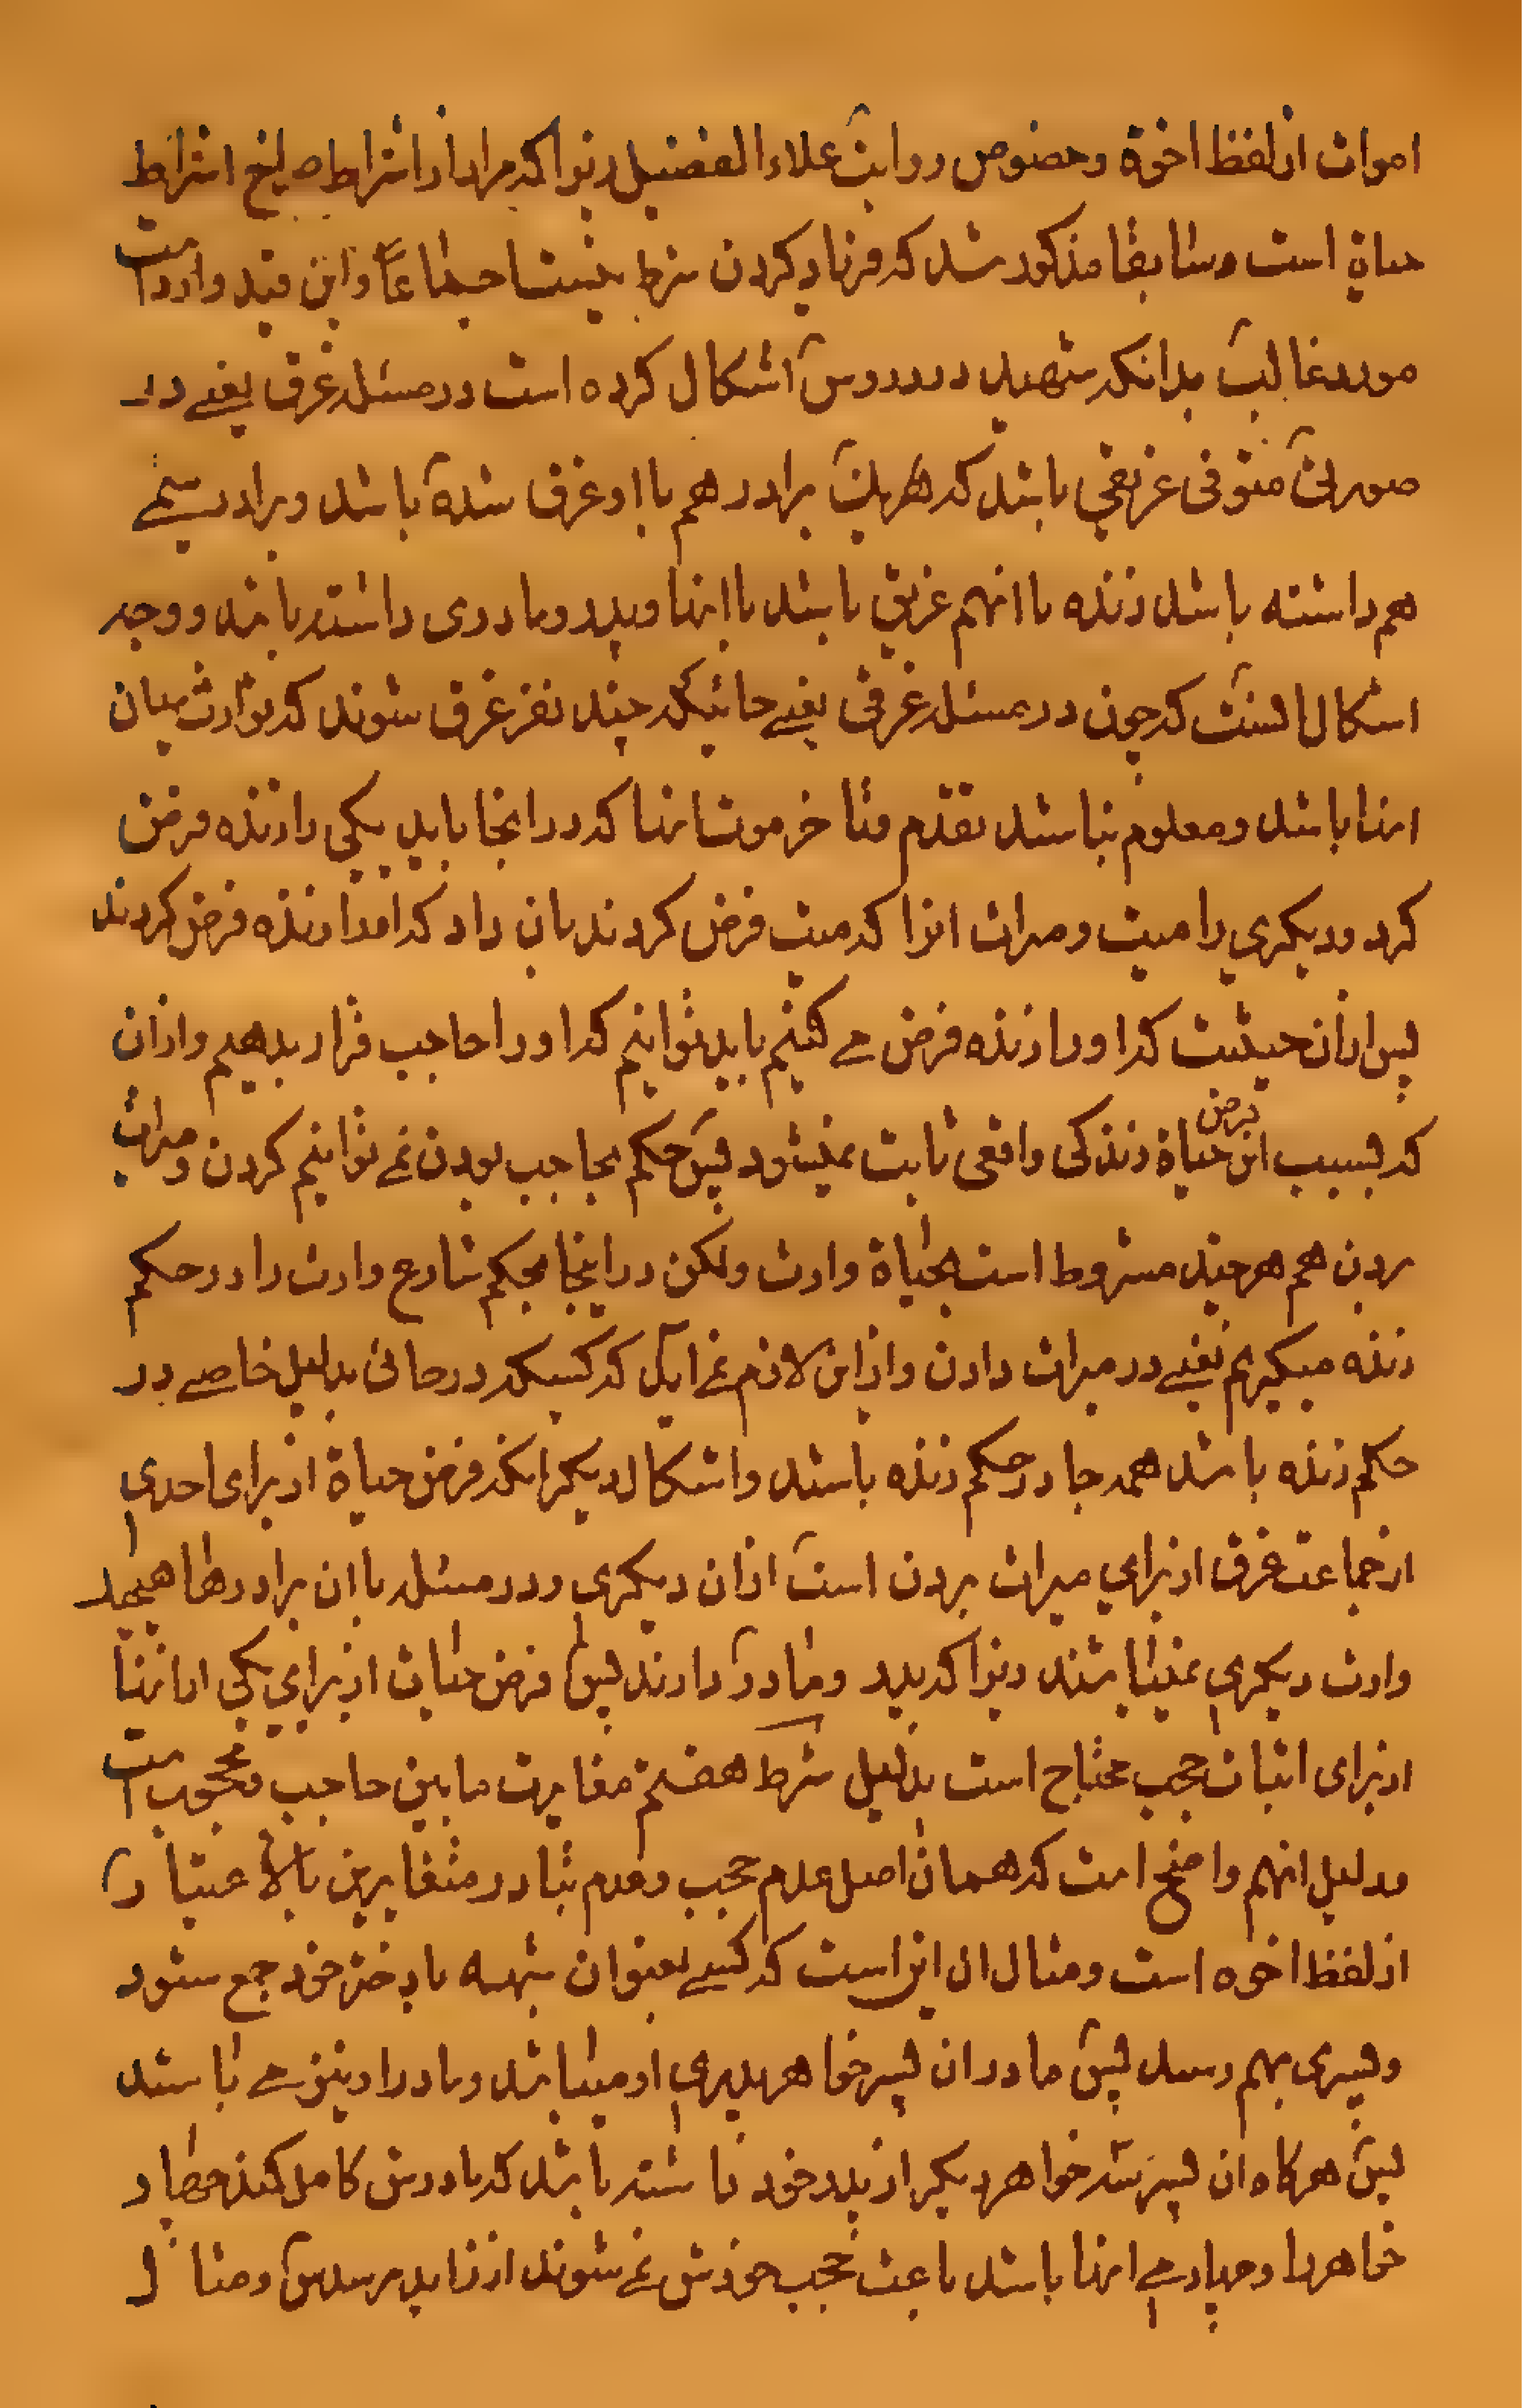 اموات از لفظ اخوة وخصوص روایت علاء الفضیل زیرا که مراد از اشتراط صایخ اشتراط
حیاة است وسابقا مذکور شد که فریاد کردن شرط نیست اجماعاً واین قید وارد است
مورد غالب بدانکه شهید در دروس اشکال کرده است در مسئله غرق یعنے در
صورتی متوفی غریقی باشد که هریک برادر هم با او غرق شده باشد وبرادر سیمے
هم داشته باشد زنده یا انهم غریق باشد با اینها وپدر ومادری داشته باشد ووجه
اشکال اینست که چون در مسئله غرقی یعنے جائیکه چند نفر غرق شوند که توارث میان
اینها باشد ومعلوم نباشد تقدم وتاخر موت اینها که در اینجا باید یکی را زنده فرض
کرد ودیگری را میت ومیراث انرا که میت فرض کردند بان داد که انرا زنده فرض کردند
پس از ان حیثیت که او را زنده فرض مے کنیم باید توانیم که او را حاجب قرار بدهیم واز ان
که بسبب این فرض حیاة زندگی واقعی ثابت نمیشود پس حکم بحاجب بودن نمے توانیم کردن ومیراث
بردن هم هرچند مشروط است بحیاة وارث ولکن در اینجا بحکم شارع وارث را در حکم
زنده میگیریم یعنے در میراث دادن واز این لازم نمے اید که کسیکه در جائی بدلیل خاصے در
حکم زنده باشد همه جا در حکم زنده باشد واشکال دیگر انکه فرض حیاة از برای احدی
از جماعت غرق از برای میراث بردن است از ان دیگری ودر مسئله ما ان برادرها هیچیک
وارث دیگری نمیباشند زیرا که پدر ومادر دارند پس فرض حیات از برای یکی از اینها
از برای اثبات حجب محتاج است بدلیل شرط هفتم مغایرت مابین حاجب ومحجوب است
ودلیل انهم واضح است که همان اصل عدم حجب وعدم تبادر متغایرین بالاعتبار
از لفظ اخوه است ومثال ان این است که کسے بعنوان شبهه با دختر خود جمع شود
وپسری بهم رسد پس مادر ان پسر خواهر پدری او میباشد ومادر او نیز مے باشد
پس هرگاه ان پسر سه خواهر دیگر از پدر خود داشته باشد که مادرش کامل کند چهار
خواهر را وچهارمے اینها باشد باعث حجب خودش نمے شوند از زاید بر سدس ومثال